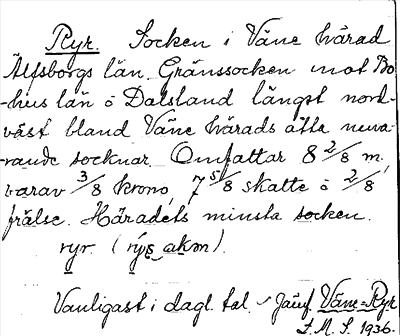 Ryr. Socken i Väne härad
Älfsborgs län. Gränssocken mot Bo-
-hus län o Dalsland längst nord-
väst bland Väne härads åtta nuva-
-rande socknar. Omfattar 8 2/8 m,
varav 3/8 krono, 7 5/8 skatte o 2/8
frälse. Häradets minsta socken.
ryr. (
Vanligast i dagl. tal. Jämf. Väne-Ryr
1936.